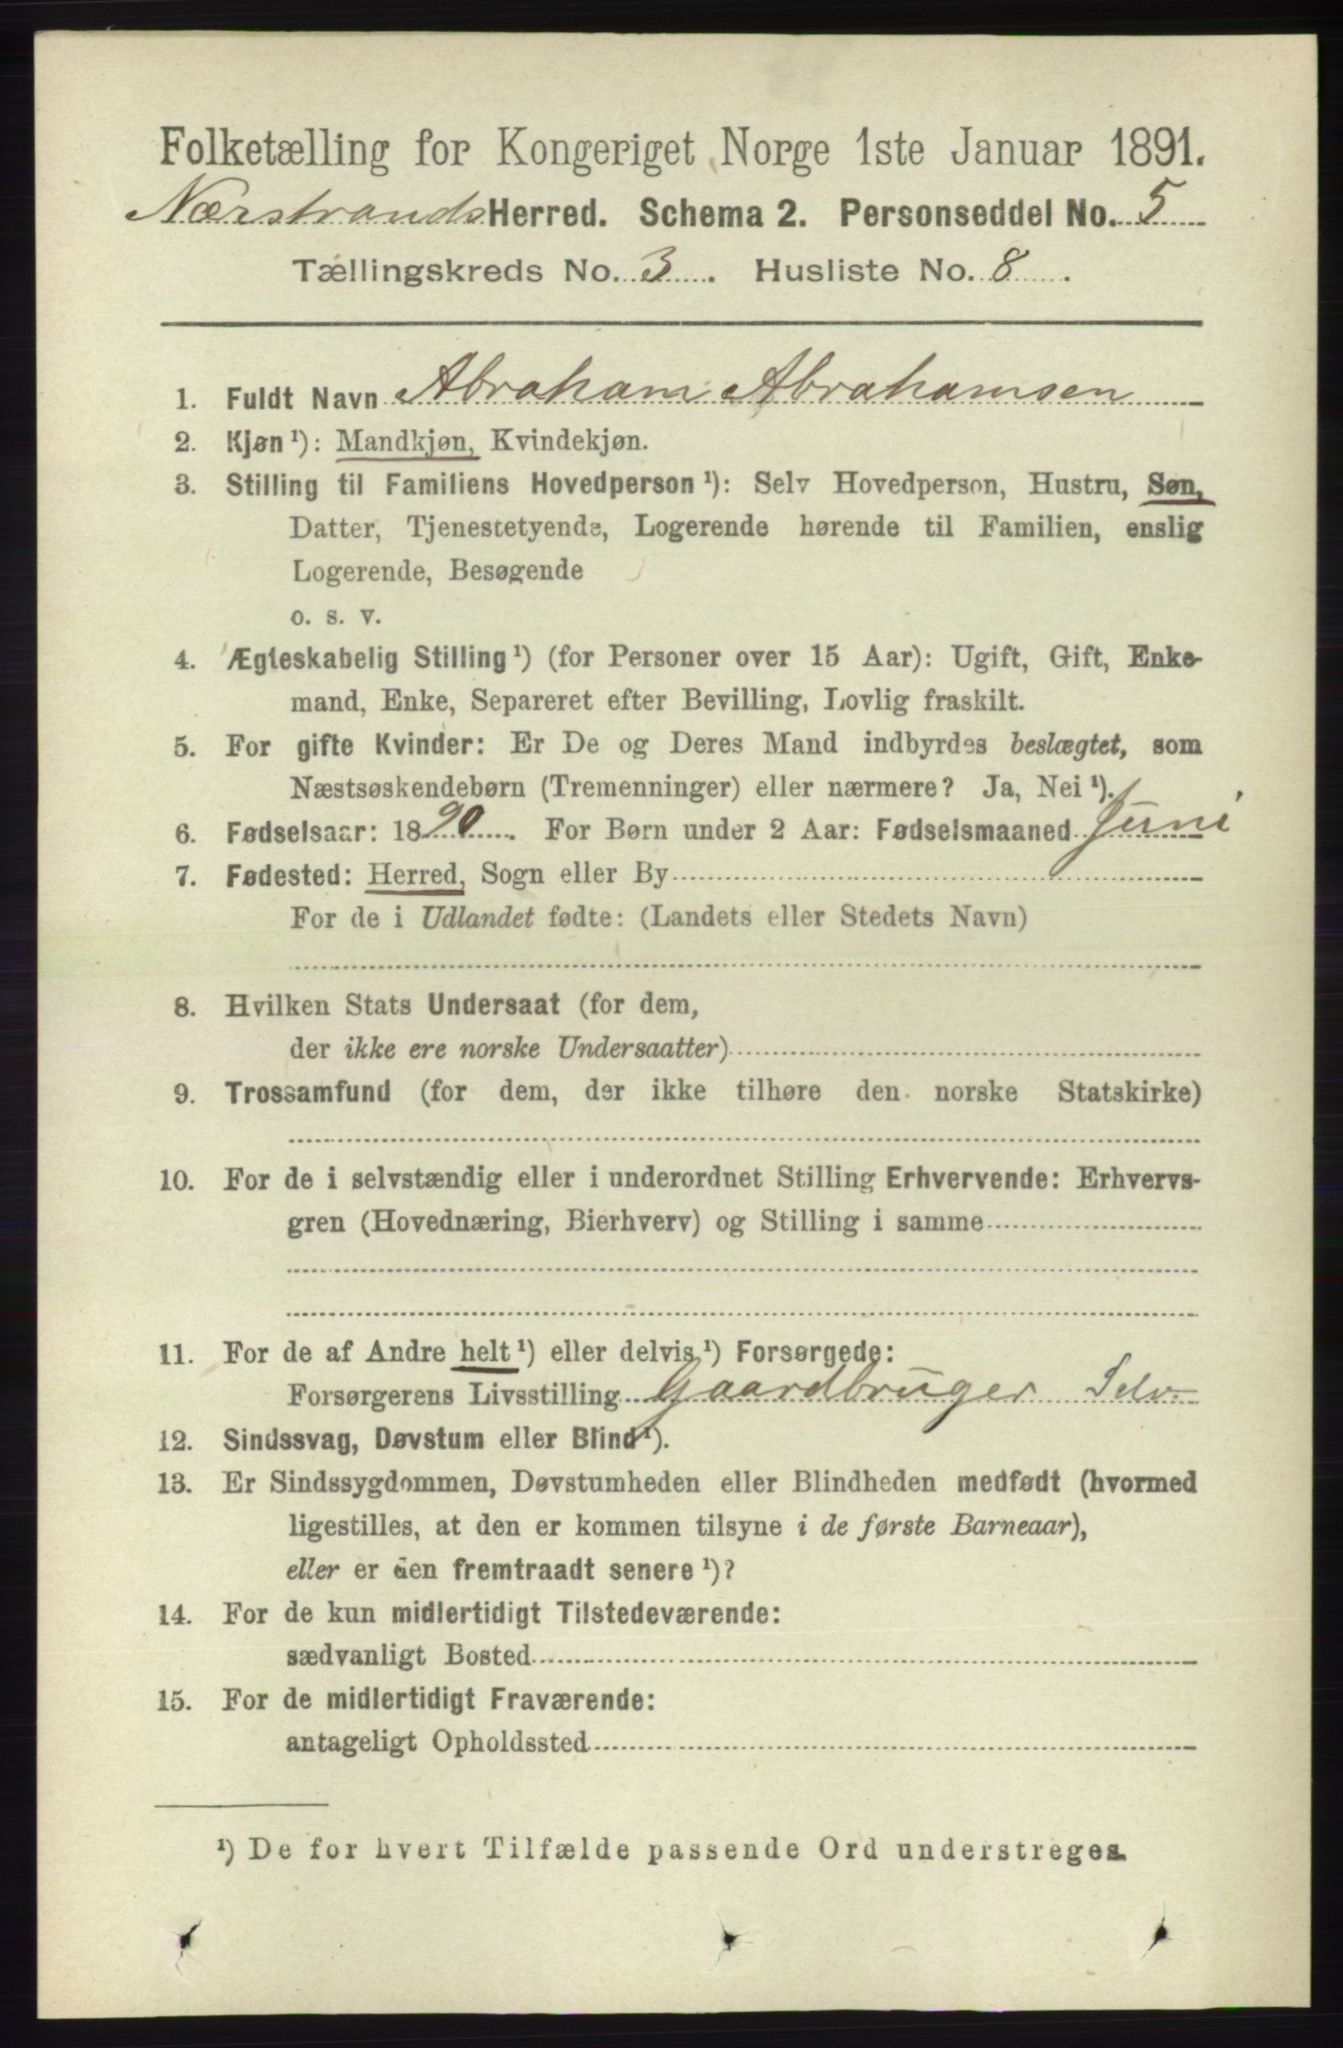 Folketælling for Kongeriget Norge 1ste Januar 1891.
Nærstrands Herred. Schema 2. Personseddel No. 5
Tællingskreds No. 3. Husliste No. 8.
1. Fuldt Navn Abraham Abrahamsen
2. Kjøn¹): Mandkjøn, Kvindekjøn.
3. Stilling til Familiens Hovedperson¹): Selv Hovedperson, Hustru, Søn,
Datter, Tjenestetyende, Logerende hørende til Familien, enslig
Logerende, Besøgende
o. s. v.
4. Ægteskabelig Stilling¹) (for Personer over 15 Aar): Ugift, Gift, Enke-
mand, Enke, Separeret efter Bevilling, Lovlig fraskilt.
5. For gifte Kvinder: Er De og Deres Mand indbyrdes beslægtet, som
Næstsøskendebørn (Tremenninger) eller nærmere? Ja, Nei¹).
6. Fødselsaar: 1890. For Børn under 2 Aar: Fødselsmaaned Juni
7. Fødested: Herred, Sogn eller By
For de i Udlandet fødte: (Landets eller Stedets Navn)
8. Hvilken Stats Undersaat (for dem,
der ikke ere norske Undersaatter)
9. Trossamfund (for dem, der ikke tilhøre den norske Statskirke)
10. For de i selvstændig eller i underordnet Stilling Erhvervende: Erhvervs-
gren (Hovednæring, Bierhverv) og Stilling i samme
11. For de af Andre helt¹) eller delvis¹) Forsørgede:
Forsørgerens Livsstilling Gaardbruger Selv
12. Sindssvag, Døvstum eller Blind¹).
13. Er Sindssygdommen, Døvstumheden eller Blindheden medfødt (hvormed
ligestilles, at den er kommen tilsyne i de første Barneaar),
eller er den fremtraadt senere¹)?
14. For de kun midlertidigt Tilstedeværende:
sædvanligt Bosted
15. For de midlertidigt Fraværende:
antageligt Opholdssted
¹) De for hvert Tilfælde passende Ord understreges.